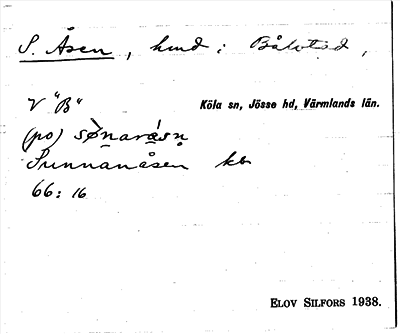 S. Åsen, hmd i Bålvtsd,
V "B"
Köla sn, Jösse hd, Värmlands län.
(po)
Sunnanåsen kbr
66: 16
ELOV SILFORS 1938.